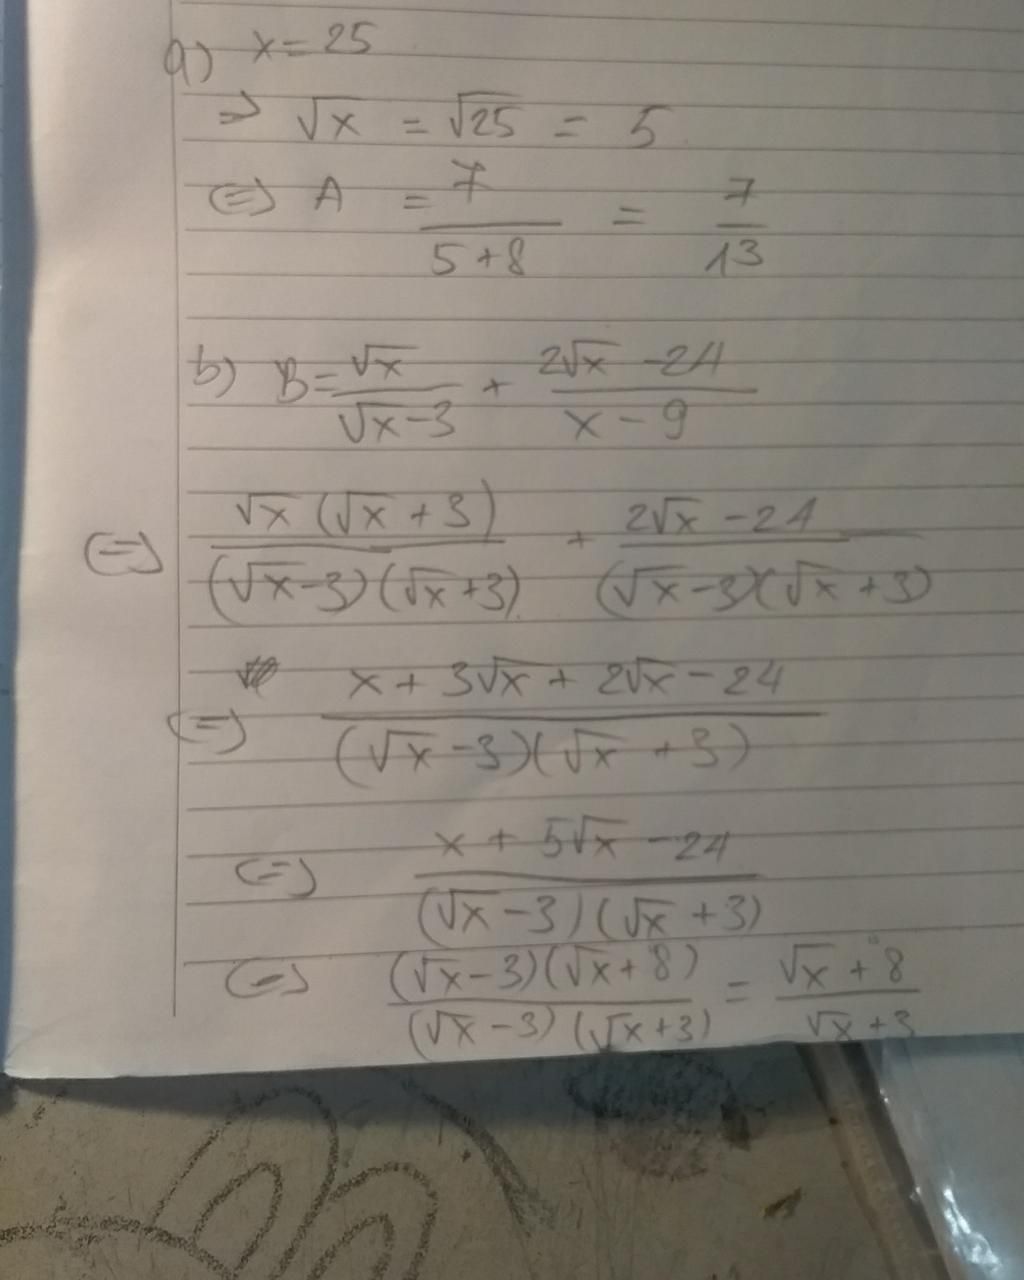 a) x = 25
=> √x = √25 = 5
(=) A = 7/(5+8) = 7/13
b) B = √x/(√x-3) + (2√x - 24)/(x - 9)
(=) √x(√x + 3)/((√x-3)(√x+3)) + (2√x - 24)/((√x-3)(√x+3))
(=) (x + 3√x + 2√x - 24)/((√x - 3)(√x + 3))
(=) (x + 5√x - 24)/((√x - 3)(√x + 3))
(=) (√x - 3)(√x + 8)/((√x - 3)(√x + 3)) = (√x + 8)/(√x + 3)